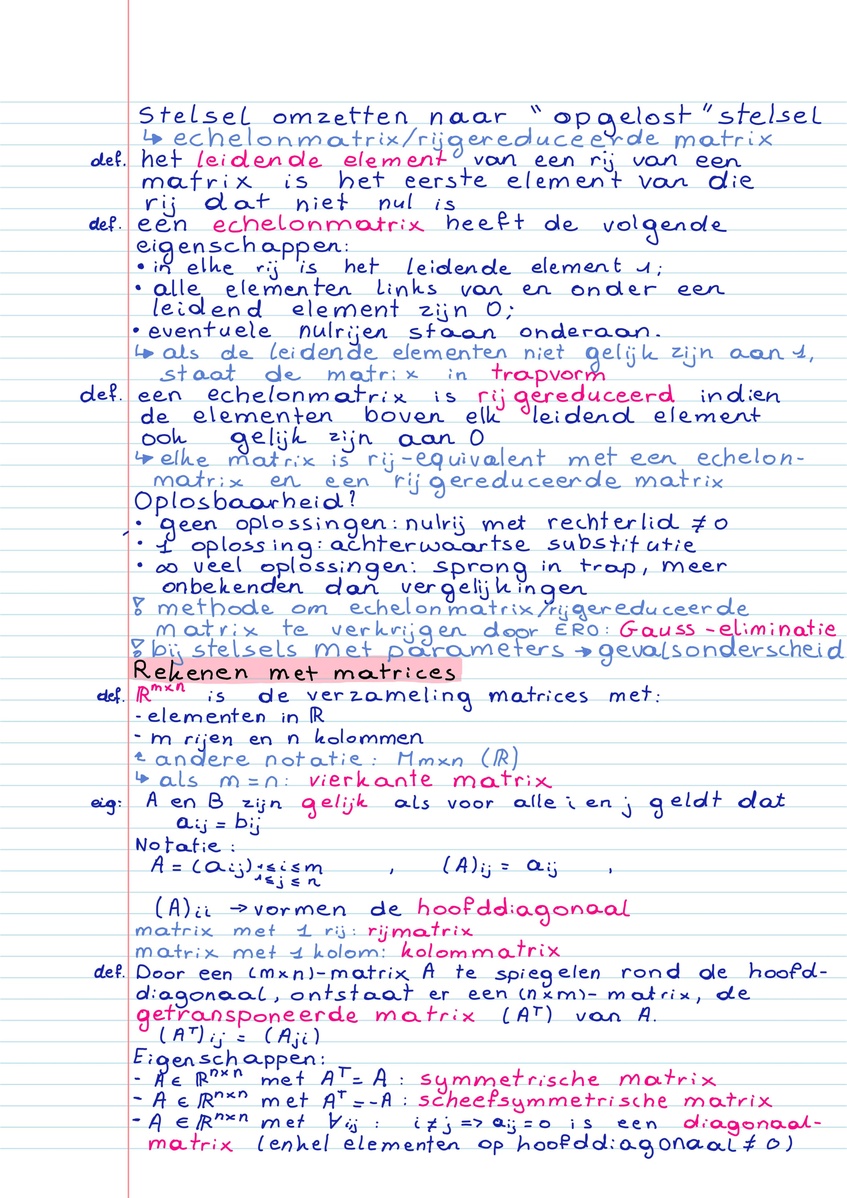 Stelsel omzetten naar "opgelost" stelsel
↳ echelonmatrix/rijgereduceerde matrix
def. het leidende element van een rij van een
matrix is het eerste element van die
rij dat niet nul is
def. een echelonmatrix heeft de volgende
eigenschappen:
• in elke rij is het leidende element 1;
• alle elementen links van en onder een
leidend element zijn 0;
• eventuele nulrijen staan onderaan.
↳ als de leidende elementen niet gelijk zijn aan 1,
staat de matrix in trapvorm
def. een echelonmatrix is rijgereduceerd indien
de elementen boven elk leidend element
ook gelijk zijn aan 0
↳ elke matrix is rij-equivalent met een echelon-
matrix en een rijgereduceerde matrix
Oplosbaarheid?
• geen oplossingen: nulrij met rechterlid ≠ 0
• 1 oplossing: achterwaartse substitutie
• ∞ veel oplossingen: sprong in trap, meer
onbekenden dan vergelijkingen
! methode om echelonmatrix/rijgereduceerde
matrix te verkrijgen door ERO: Gauss-eliminatie
! bij stelsels met parameters → gevalsonderscheid
Rekenen met matrices
def. ℝᵐˣⁿ is de verzameling matrices met:
- elementen in ℝ
- m rijen en n kolommen
↳ andere notatie: Mm×n (ℝ)
↳ als m=n: vierkante matrix
eig: A en B zijn gelijk als voor alle i en j geldt dat
aij = bij
Notatie:
A = (aij) 1≤i≤m , (A)ij = aij ,
1≤j≤n
(A)ii → vormen de hoofddiagonaal
matrix met 1 rij: rijmatrix
matrix met 1 kolom: kolommatrix
def. Door een (m×n)-matrix A te spiegelen rond de hoofd-
diagonaal, ontstaat er een (n×m)-matrix, de
getransponeerde matrix (Aᵀ) van A.
(Aᵀ)ij = (Aji)
Eigenschappen:
- A ∈ ℝⁿˣⁿ met Aᵀ = A : symmetrische matrix
- A ∈ ℝⁿˣⁿ met Aᵀ = -A : scheefsymmetrische matrix
- A ∈ ℝⁿˣⁿ met ∀ij : i≠j => aij = 0 is een diagonaal-
matrix (enkel elementen op hoofddiagonaal ≠ 0)